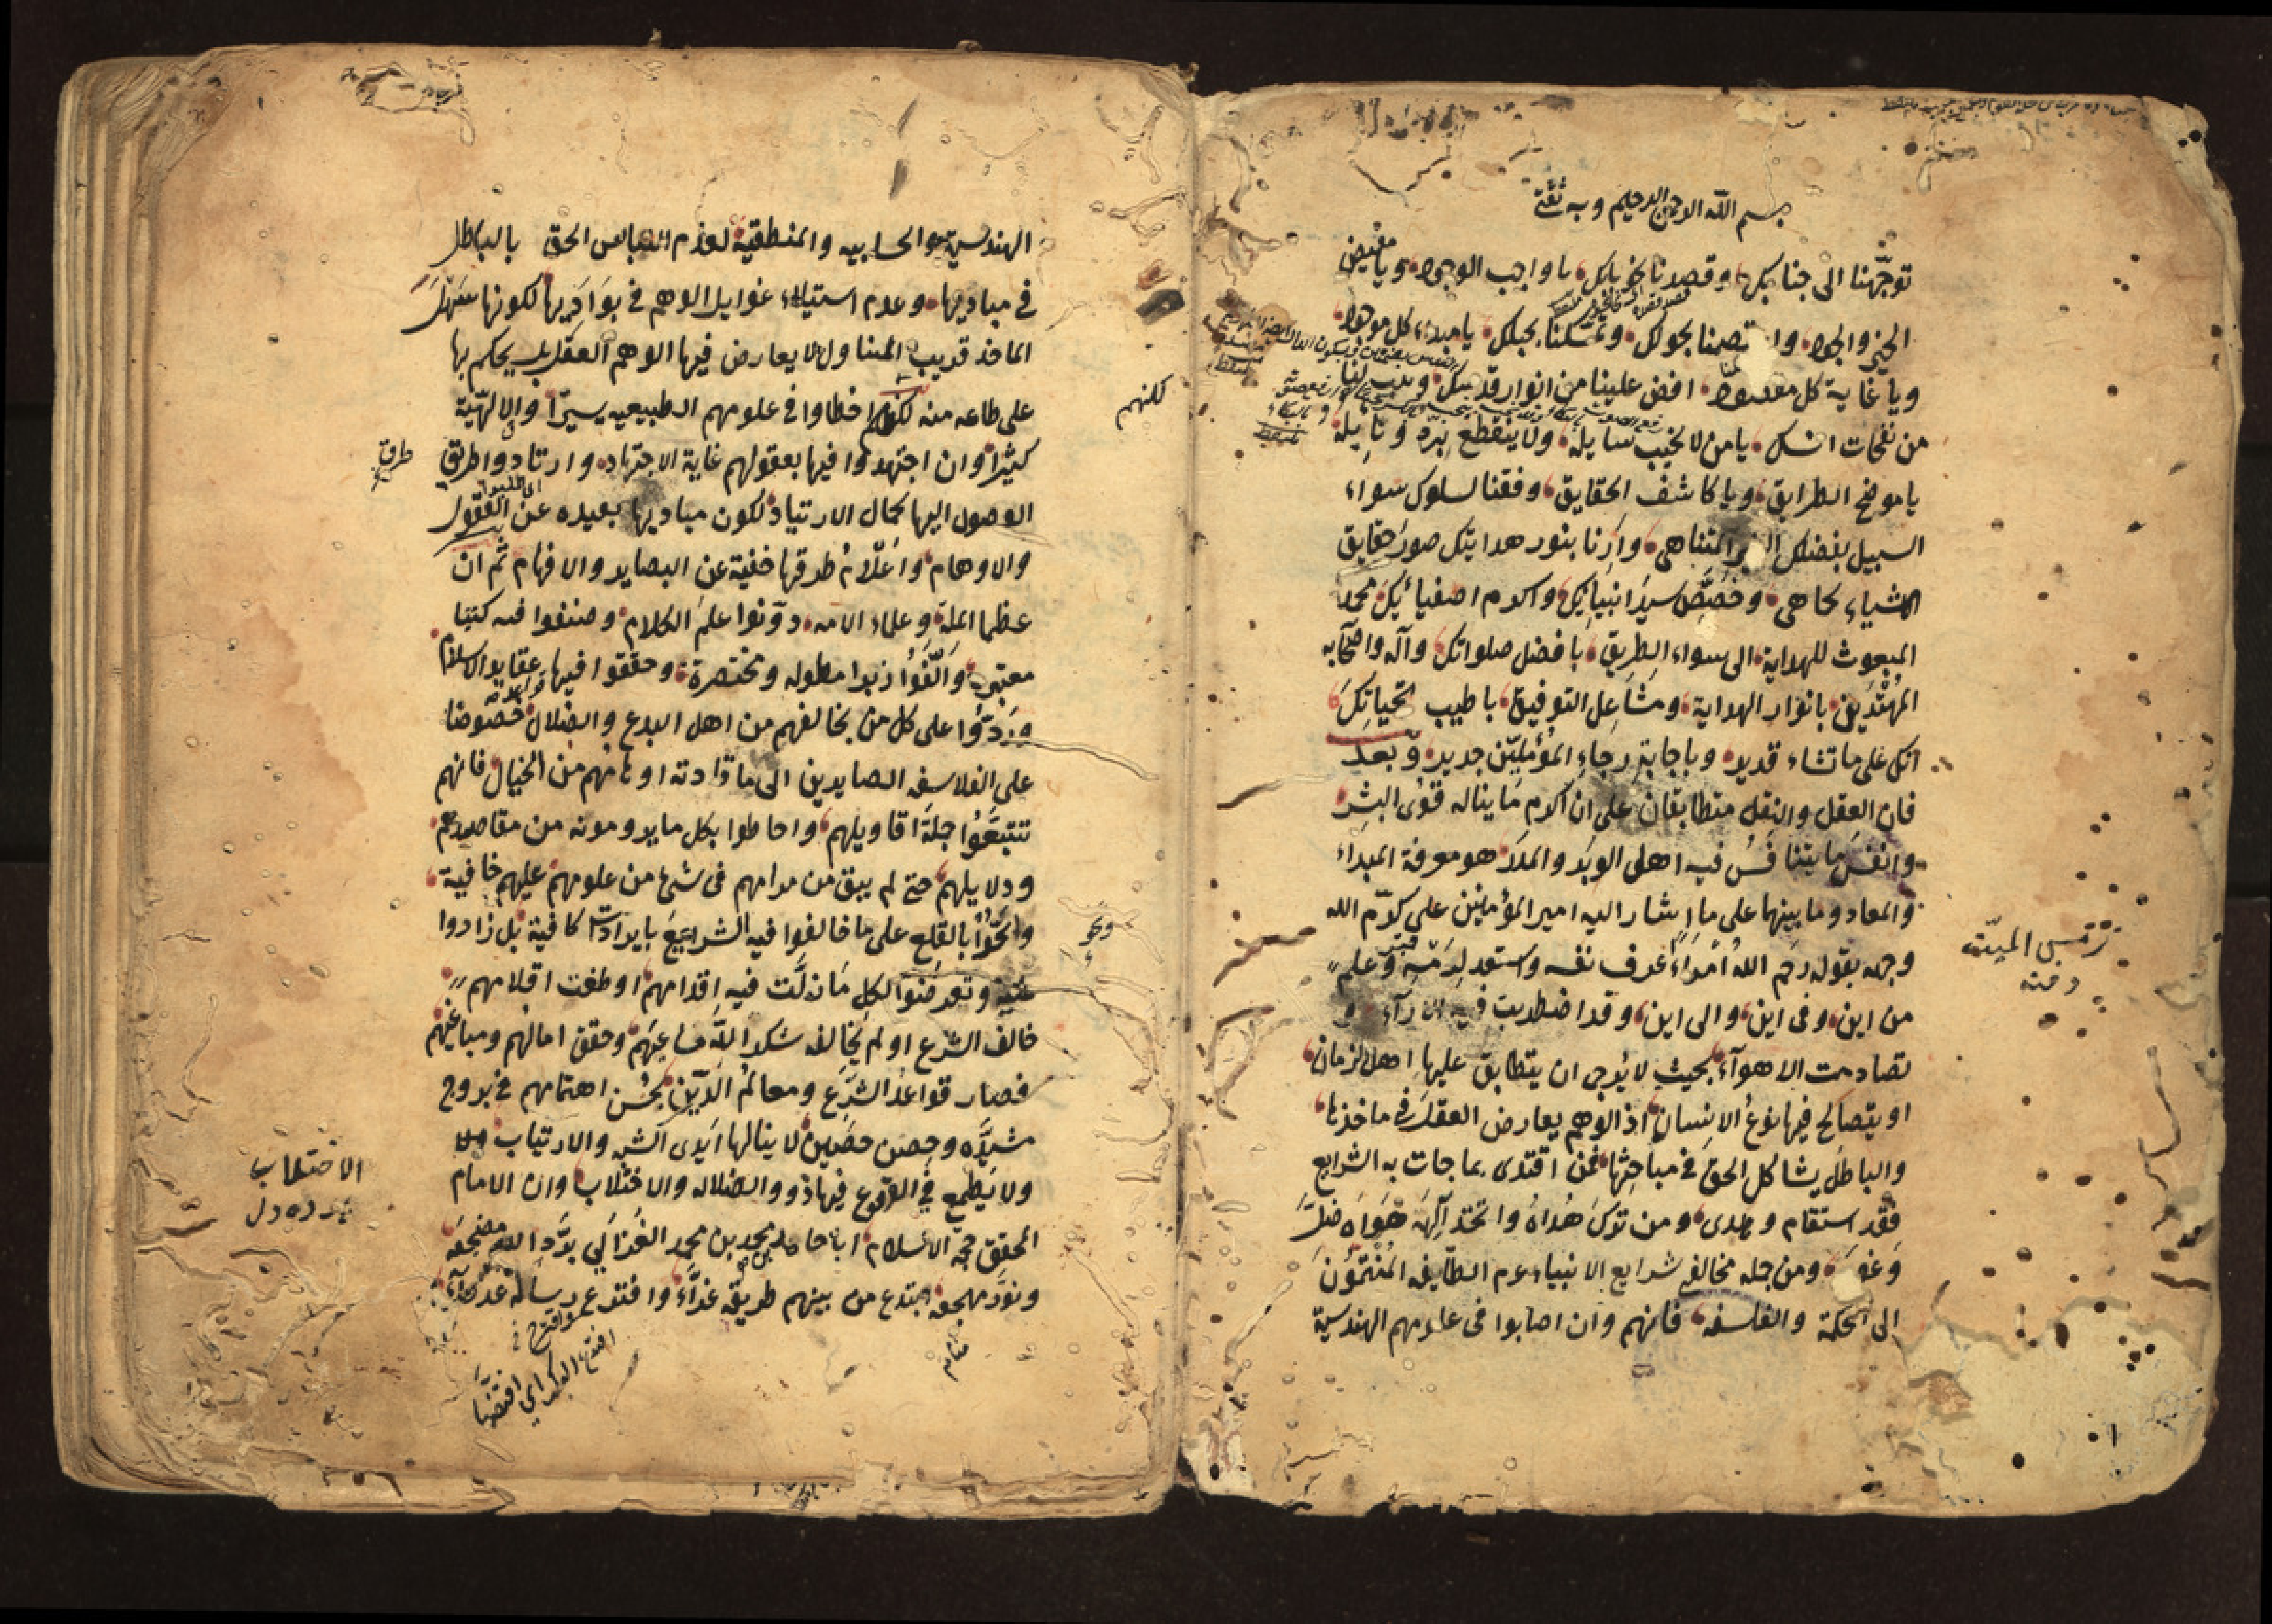 بسم الله الرحمن الرحيم وبه ثقتي
توجهنا الى جنابك وقصدنا نحو بابك يا واجب الوجود ويا مفيض
الخير والجود واعتصمنا بحولك وتمسكنا بحبلك يا مبداء كل موجود
ويا غاية كل مقصود افض علينا من انوار قدسك وهب لنا
من نفحات انسك يا من لا يخيب سايله ولا ينقطع بره ونايله
يا موضح الطرايق ويا كاشف الحقايق وفقنا لسلوك سواء
السبيل بفضلك الغير المتناهى وارنا بنور هدايتك صور حقايق
الاشياء كما هى وخصص سيد انبيائك واكرم اصفيائك محمد
المبعوث للهداية الى سواء الطريق بافضل صلواتك وآله واصحابه
المهتدين بانوار الهداية ومشاعل التوفيق باطيب تحياتك
انك على ما تشاء قدير وباجابة رجاء المؤملين جدير وبعد
فان العقل والنقل متطابقان على ان اكرم ما يناله قوى البشر
وانفس ما يتنافس فيه اهل الوبر والمدر هو معرفة المبداء
والمعاد وما بينهما على ما اشار اليه امير المؤمنين على كرم الله
وجهه بقوله رحم الله امراء عرف نفسه واستعد لرمسه وعلم
من اين وفى اين والى اين وقد اضطربت فيه الارآء و
تصادمت الاهوآء بحيث لا يرجى ان يتطابق عليها اهل الزمان
او يتصالح فيها نوع الانسان اذ الوهم يعارض العقل فى ماخذها
والباطل يشاكل الحق فى مباحثها فمن اقتدى بما جات به الشرايع
فقد استقام وهدى ومن ترك هداه واتخذ آلهه هواه ضل
وغوى ومن جمله مخالفى شرايع الانبياء عم الطايفه المنتمون
الى الحكمة والفلسفه فانهم وان اصابوا فى علومهم الهندسية
قبر الميت
دفنه
الهندسية والحسابيه والمنطقية لعدم التباس الحق بالباطل
فى مباديها وعدم استيلاء غوايل الوهم فى بواديها لكونها سهل
الماخذ قريب المتناول لا يعارض فيها الوهم العقل بل يحكم بها
على طاعه منه لكنهم اخطاوا فى علومهم الطبيعيه يسيرا والالهية
كثيرا وان اجتهدوا فيها بعقولهم غاية الاجتهاد وارتادوا طريق
الوصول اليها كمال الارتياد لكون مباديها بعيده عن العقول
والاوهام واعلام طرقها خفية عن البصاير والافهام ثم ان
عظما المله وعلماء الامه دونوا علم الكلام وصنفوا فيه كتبا
معتبرة والفوا زبرا مطوله ومختصرة وحققوا فيها عقايد الاسلام
وردوا على كل من يخالفهم من اهل البدع والضلال خصوصا
على الفلاسفه الصايرين الى ما قادته اوهامهم من الخيال فانهم
تتبعوا جملة اقاويلهم واحاطوا بكل ما يرومونه من مقاصدهم
ودلايلهم حتى لم يبق من مرامهم فى شئ من علومهم عليهم خافية
والحوا بالقلع على ما خالفوا فيه الشرايع بايرادات كافية بل زادوا
عليه وتعرضوا لكل ما زلت فيه اقدامهم او طغت اقلامهم
خالف الشرع او لم يخالف شكر الله مساعيهم وحقق امالهم ومباغيهم
فصار قواعد الشرع ومعالم الدين بحسن اهتمامهم فى بروج
مشيده وحصن حصين لا ينالها ايدى الشر والارتياب ولا
ولا يطمع فى الوقوع فيها ذوو الضلاله والاختلاب وان الامام
المحقق حجة الاسلام ابا حامد محمد بن محمد بن محمد الغزالى برد الله مضجعه
ونور مهجعه ابتدع من بينهم طريقه غراء واخترع رسالة عذراء
لكنهم
طرق